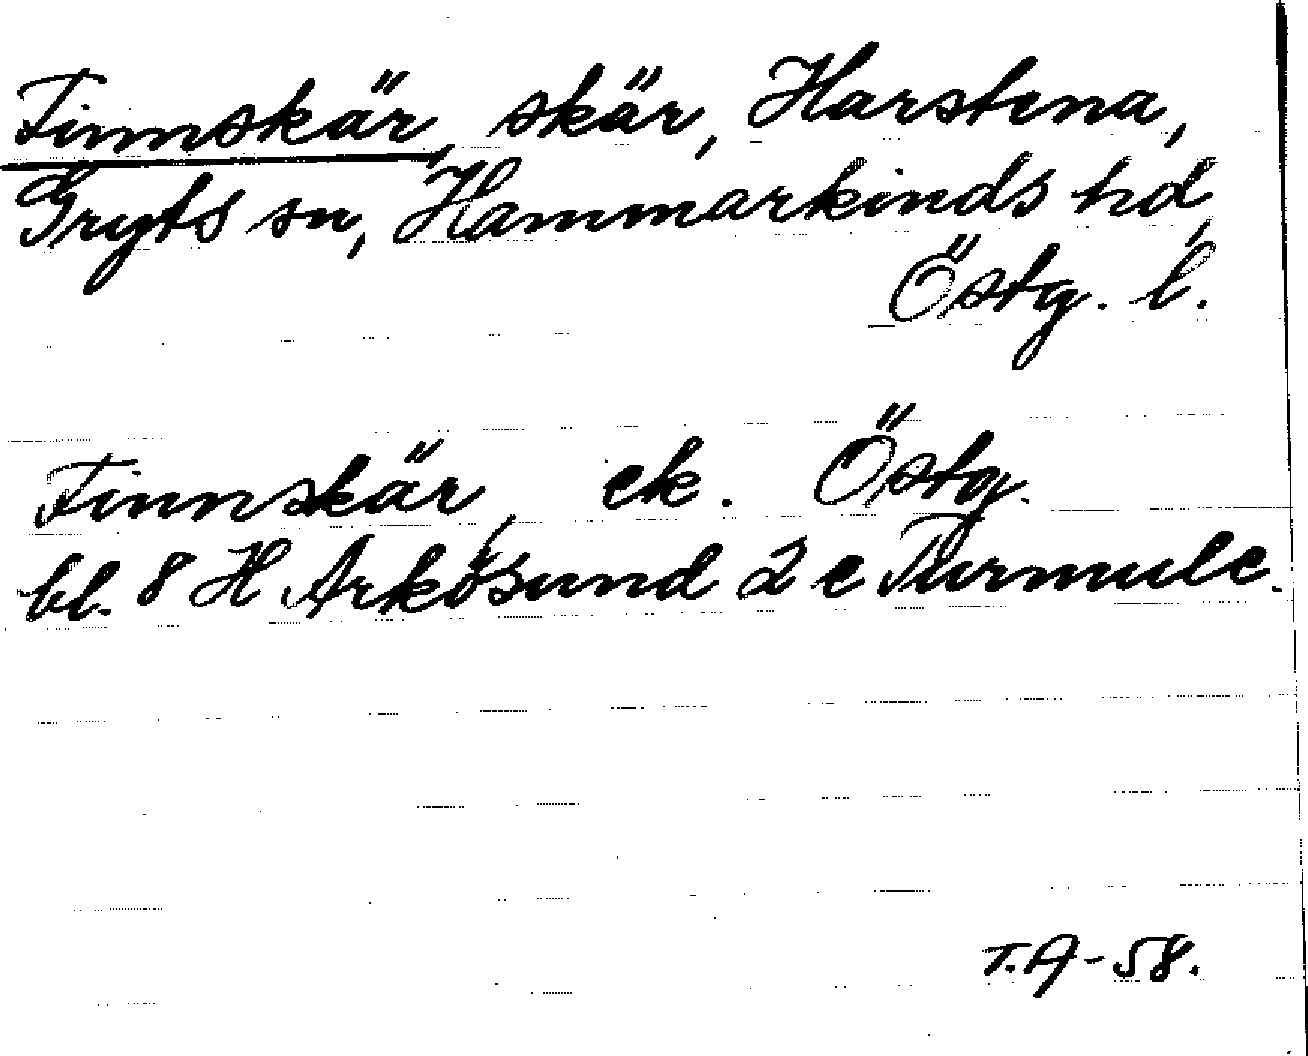 Finnskär, skär, Harstena,
Gryts sn, Hammarkinds hd,
Östg. l.
Finnskär, ek. Östg.
bl. 8 H Arkösund 2 e Turmule.
T.A-58.